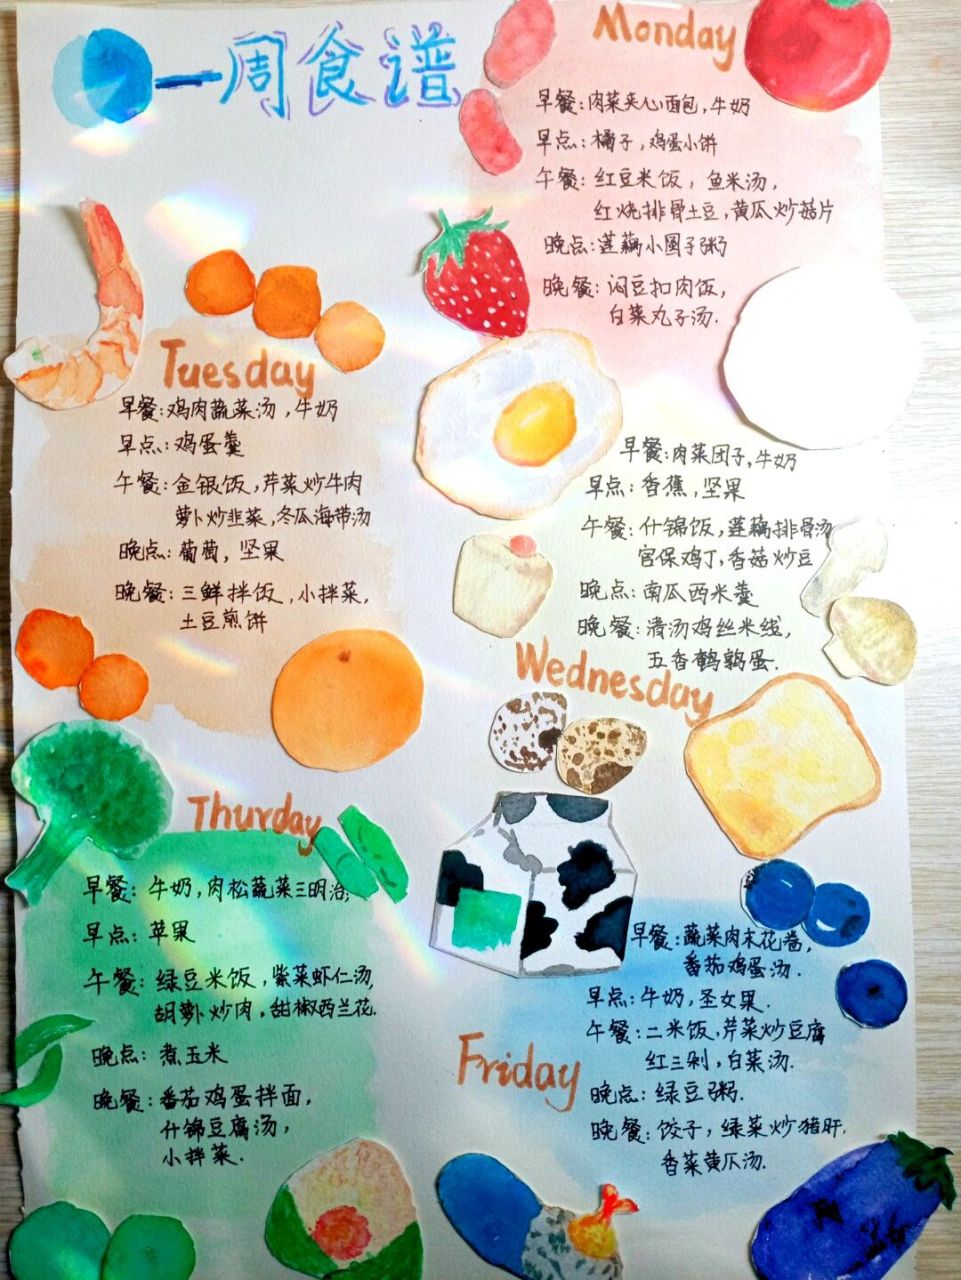 一周食谱
Monday
早餐:肉菜夹心面包,牛奶
早点:橘子,鸡蛋小饼
午餐:红豆米饭,鱼米汤,
红烧排骨土豆,黄瓜炒菇片
晚点:莲藕小圆子粥
晚餐:闷豆扣肉饭,
白菜丸子汤.
Tuesday
早餐:鸡肉蔬菜汤,牛奶
早点:鸡蛋羹
午餐:金银饭,芹菜炒牛肉
萝卜炒韭菜,冬瓜海带汤
晚点:葡萄,坚果
晚餐:三鲜拌饭,小拌菜,
土豆煎饼
早餐:肉菜团子,牛奶
早点:香蕉,坚果
午餐:什锦饭,莲藕排骨汤
宫保鸡丁,香菇炒豆
晚点:南瓜西米羹
晚餐:清汤鸡丝米线,
五香鹌鹑蛋.
Wednesday
Thurday
早餐:牛奶,肉松蔬菜三明治;
早点:苹果
午餐:绿豆米饭,紫菜虾仁汤,
胡萝卜炒肉,甜椒西兰花.
晚点:煮玉米
晚餐:番茄鸡蛋拌面,
什锦豆腐汤,
小拌菜.
早餐:蔬菜肉末花卷,
番茄鸡蛋汤.
早点:牛奶,圣女果.
午餐:二米饭,芹菜炒豆腐
红三剁,白菜汤.
晚点:绿豆粥.
晚餐:饺子,绿菜炒猪肝.
香菜黄瓜汤.
Friday